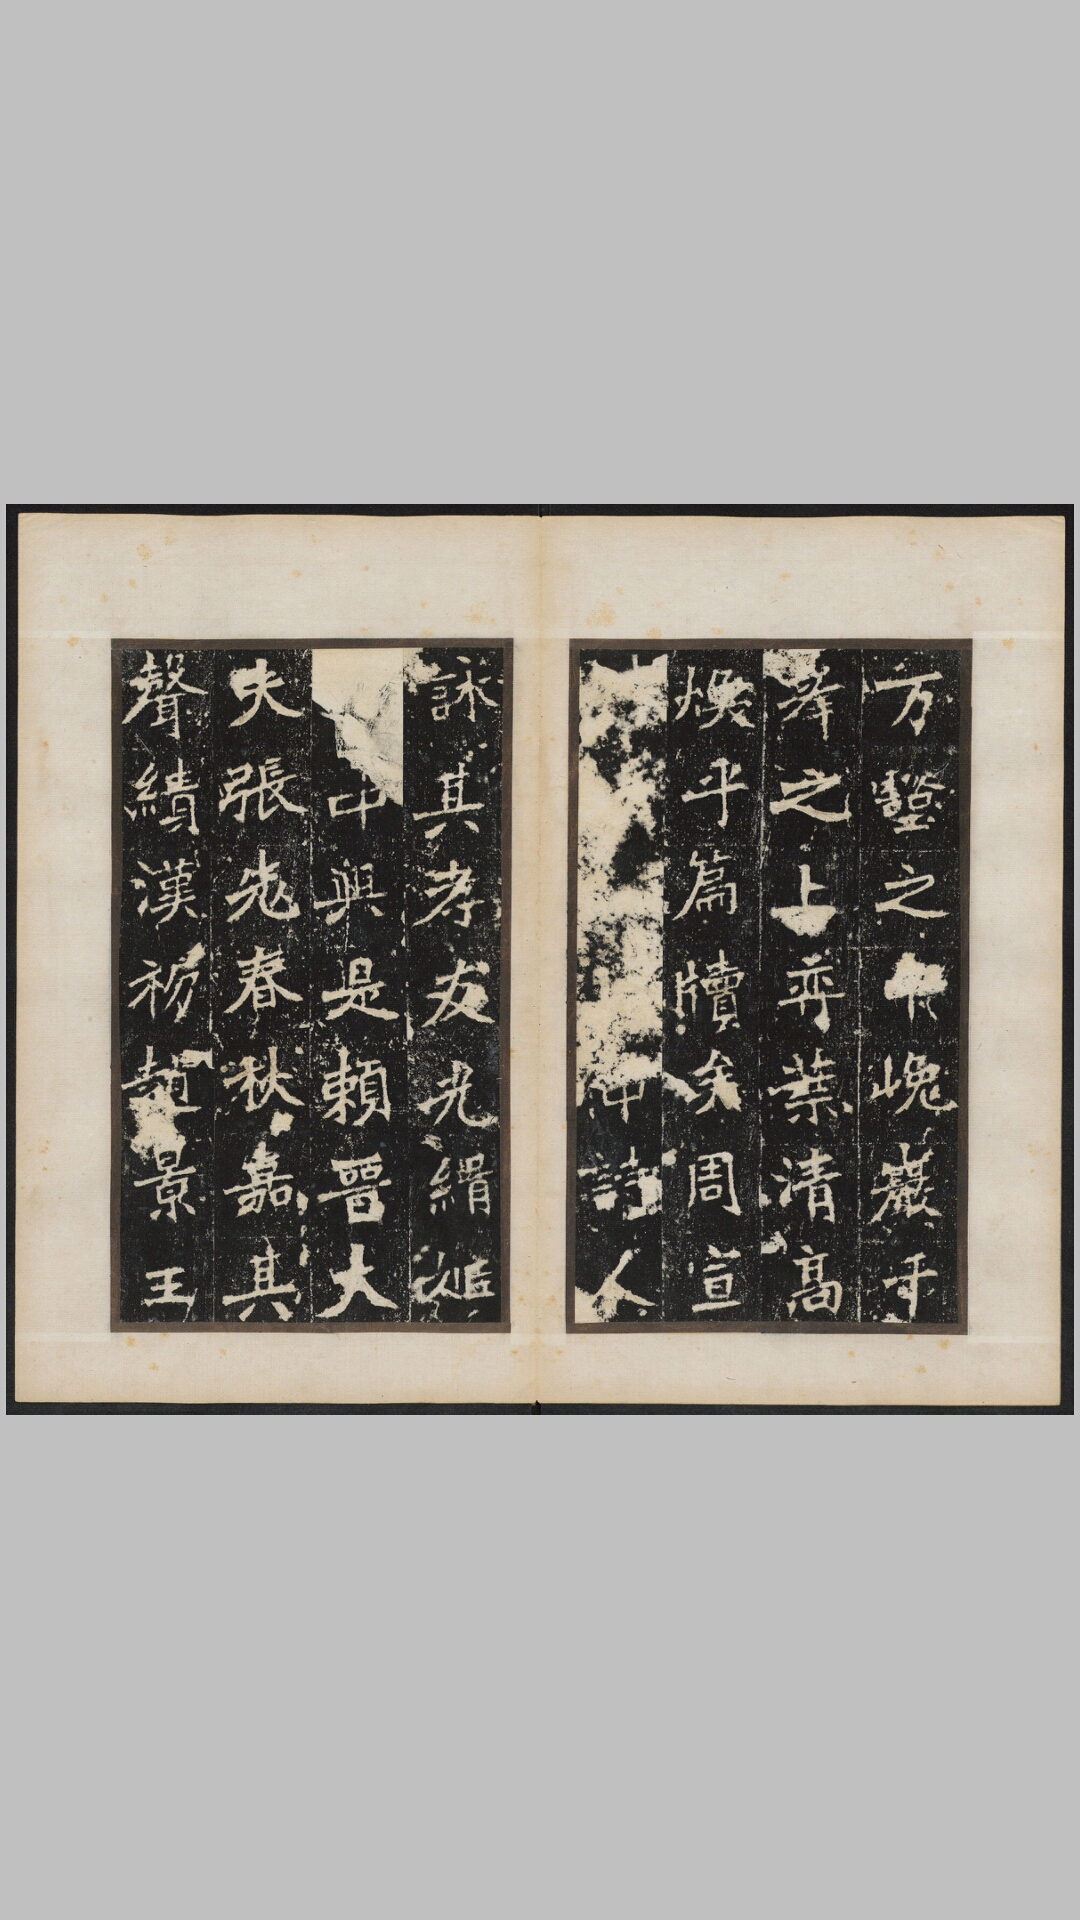 方壑之嵬巖乎
峯之上弈葉清高
煥乎篇牘矣周宣
中詩人
詠其孝友光緝姬
中興是賴晉大
夫張老春秋嘉其
聲績漢初趙景王